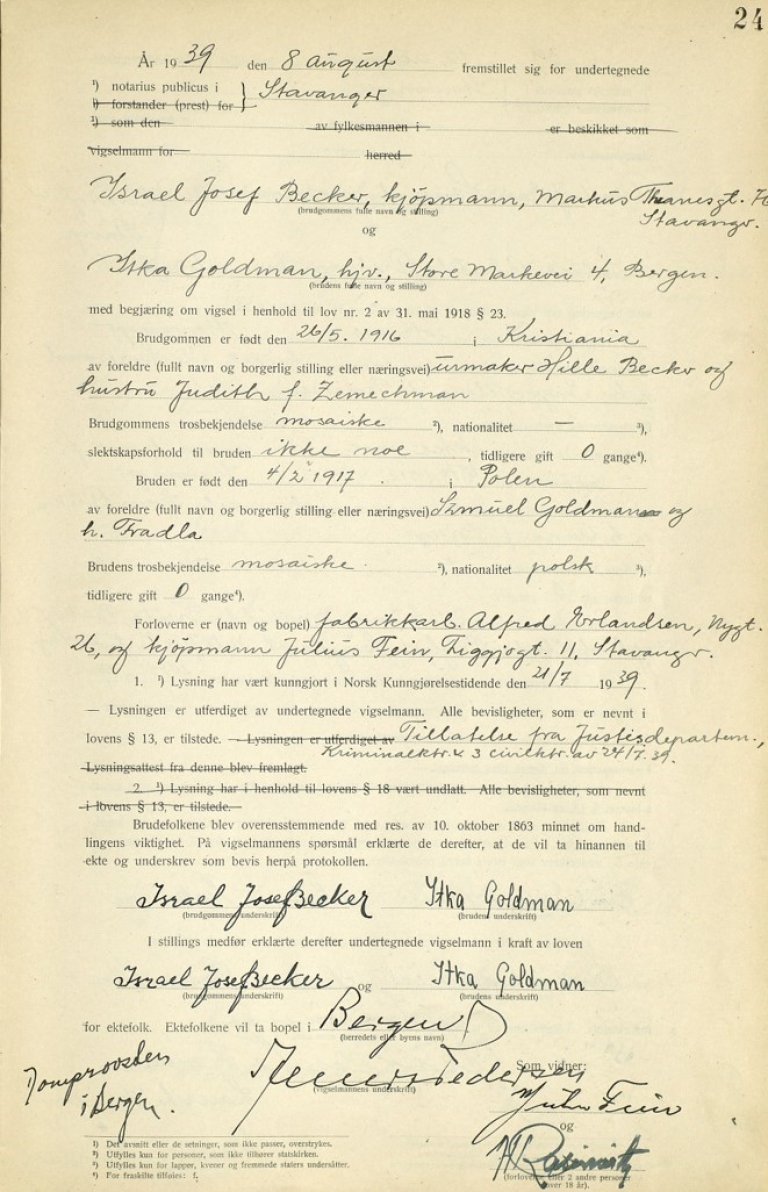 24
År 1939 den 8 august fremstillet sig for undertegnede
¹) notarius publicus i } Stavanger
¹) forstander (prest) for
¹) som den av fylkesmannen i er beskikket som
vigselmann for herred
Israel Josef Becker, kjöpmann, Markus Thranesgt.
Stavanger.
(brudgommens fulle navn og stilling)
og
Itka Goldman, hjv., Store Markevei 4, Bergen.
(brudens fulle navn og stilling)
med begjæring om vigsel i henhold til lov nr. 2 av 31. mai 1918 § 23.
Brudgommen er født den 26/5. 1916 i Kristiania
av foreldre (fullt navn og borgerlig stilling eller næringsvei) urmaker Hille Becker og
hustru Judith f. Zemechman
Brudgommens trosbekjendelse mosaiske ²), nationalitet — ³),
slektskapsforhold til bruden ikke noe, tidligere gift 0 gange⁴).
Bruden er født den 4/2 1917. i Polen
av foreldre (fullt navn og borgerlig stilling eller næringsvei) Szmuel Goldman og
h. Fradla
Brudens trosbekjendelse mosaiske. ²), nationalitet polsk ³),
tidligere gift 0 gange⁴).
Forloverne er (navn og bopel) fabrikkarb. Alfred Erlandsen, Nygt.
26, og kjöpmann Julius Fein, Ziggjogt. 11, Stavanger.
1. ¹) Lysning har vært kunngjort i Norsk Kunngjørelsestidende den 21/7 1939.
— Lysningen er utferdiget av undertegnede vigselmann. Alle bevisligheter, som er nevnt i
lovens § 13, er tilstede. — Lysningen er utferdiget av Tillatelse fra Justisdepartem.,
Kriminalktr. & 3 civilktr. av 24/7.39.
Lysningsattest fra denne blev fremlagt.
2. ¹) Lysning har i henhold til lovens § 18 vært undlatt. Alle bevisligheter, som nevnt
i lovens § 13, er tilstede.
Brudefolkene blev overensstemmende med res. av 10. oktober 1863 minnet om hand-
lingens viktighet. På vigselmannens spørsmål erklærte de derefter, at de vil ta hinannen til
ekte og underskrev som bevis herpå protokollen.
Israel Josef Becker Itka Goldman
(brudgommens underskrift) (brudens underskrift)
I stillings medfør erklærte derefter undertegnede vigselmann i kraft av loven
Israel Josef Becker og Itka Goldman
(brudgommens underskrift) (brudens underskrift)
for ektefolk. Ektefolkene vil ta bopel i Bergen
(herredets eller byens navn)
Domprovsden
i Bergen.
(vigselmannens underskrift)
Som vidner:
Julius Fein
og
(forloverne eller 2 andre personer
over 18 år).
¹) Det avsnitt eller de setninger, som ikke passer, overstrykes.
²) Utfylles kun for personer, som ikke tilhører statskirken.
³) Utfylles kun for lapper, kvener og fremmede staters undersåtter.
⁴) For fraskilte tilføies: f.